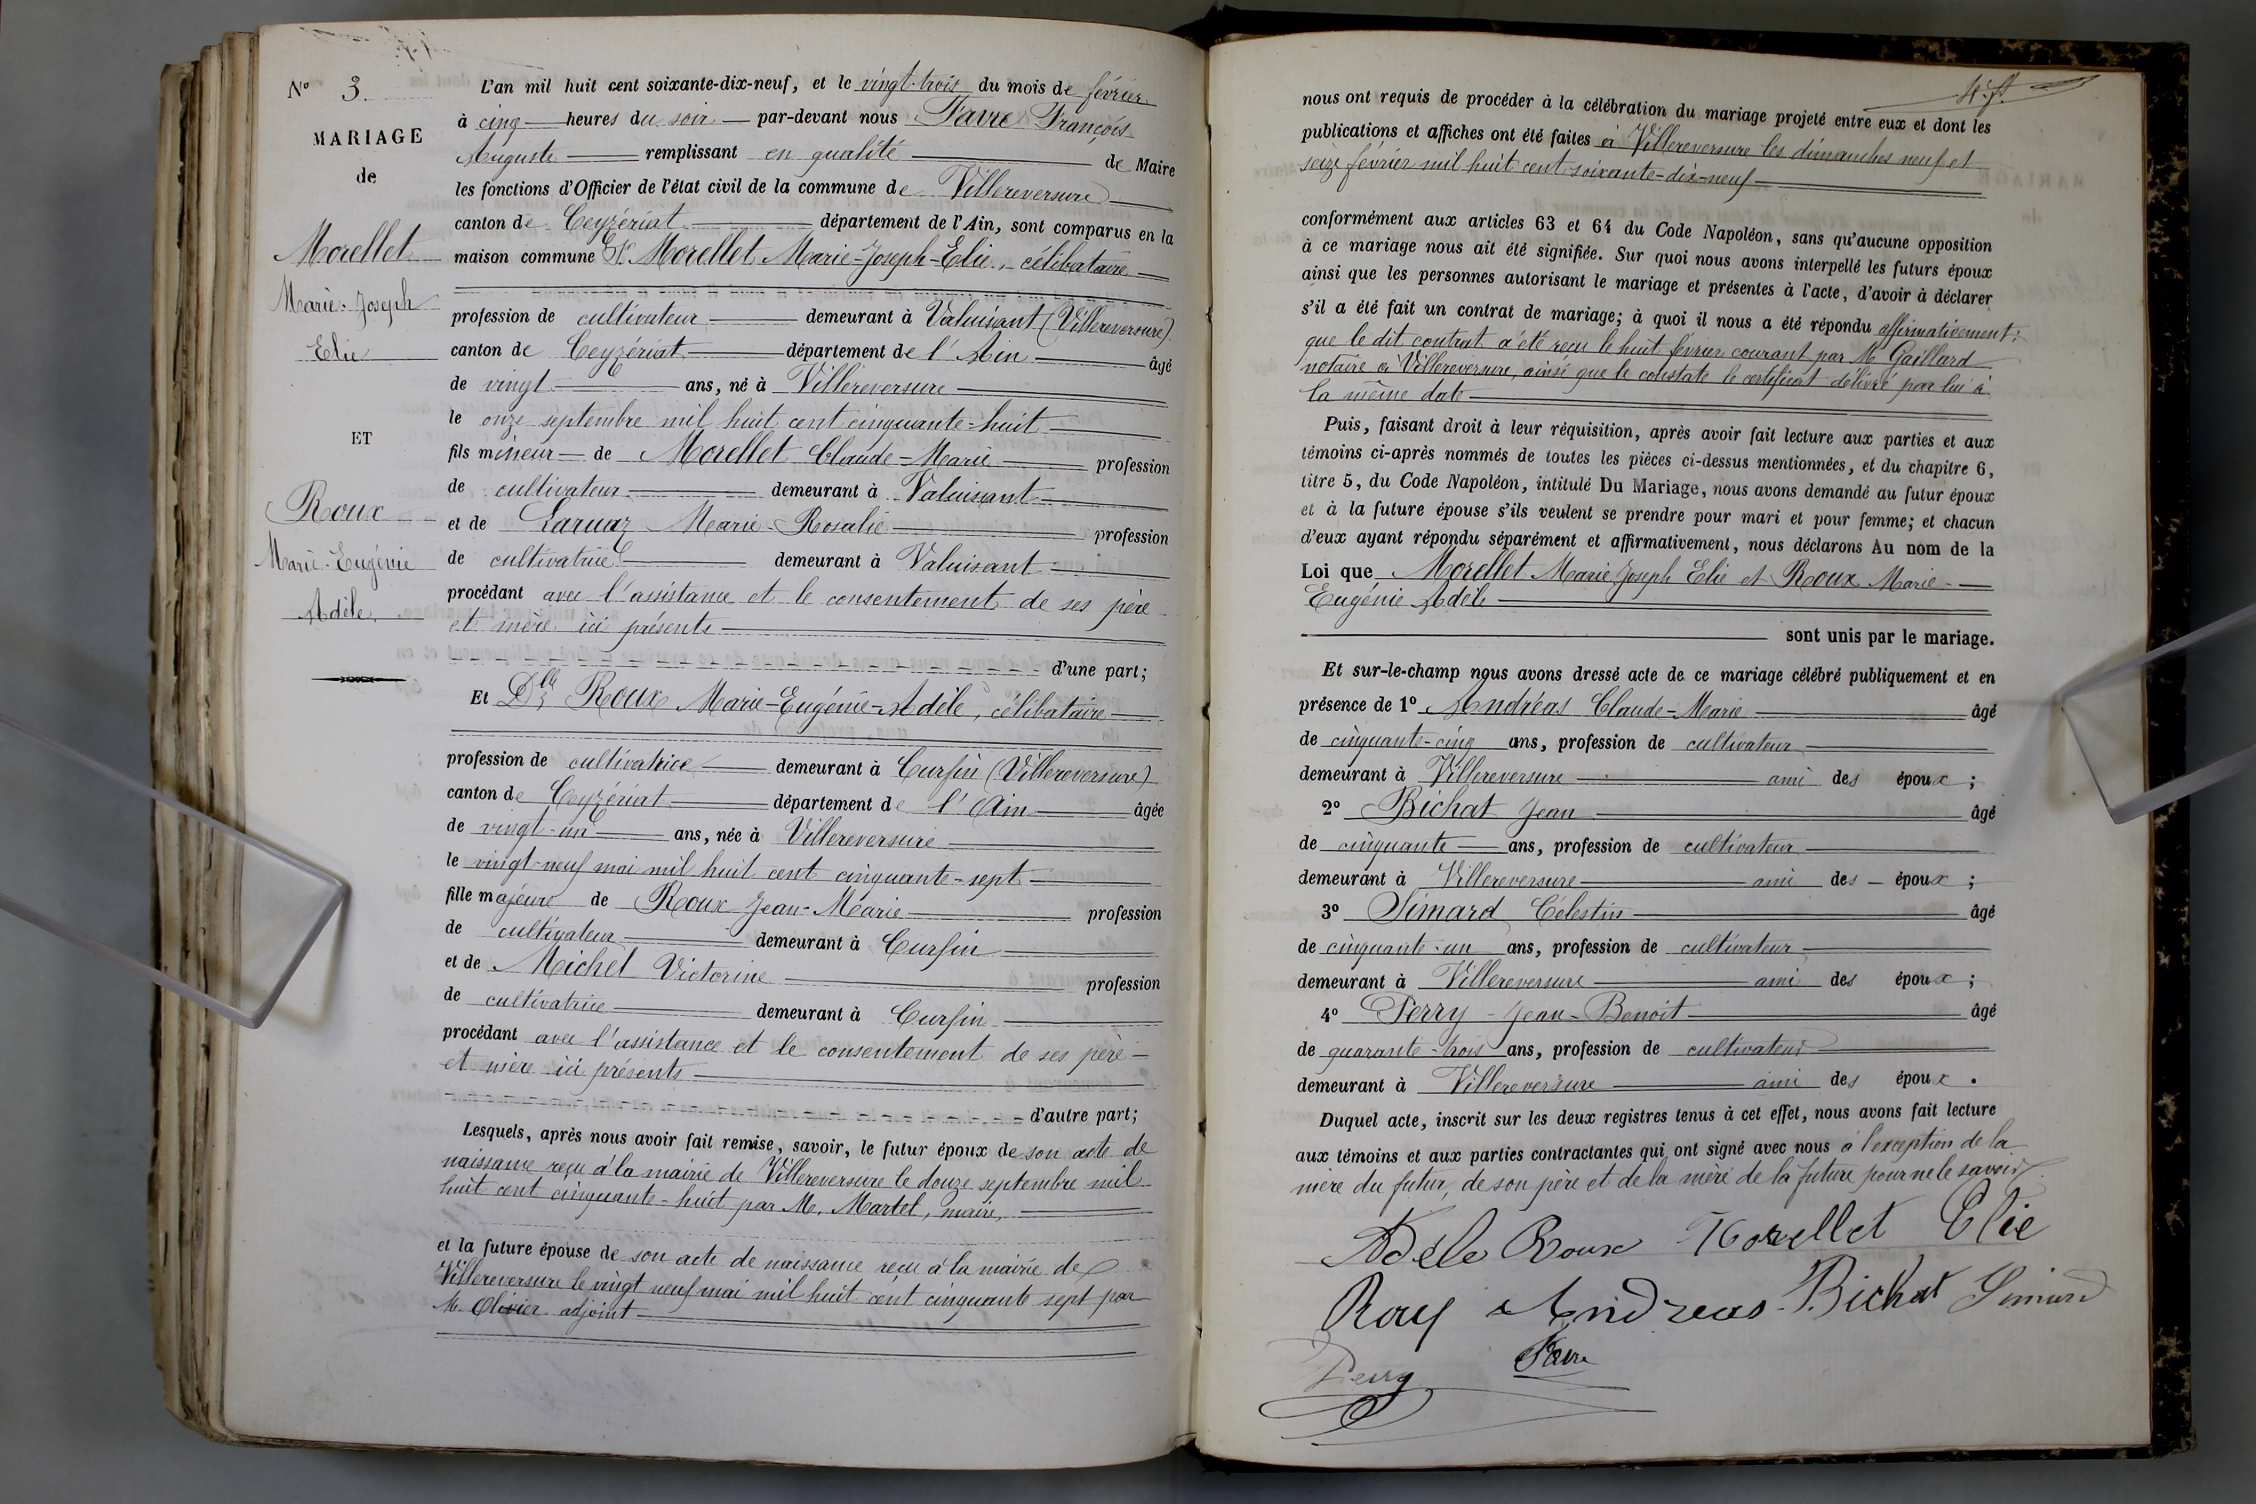 N° 3.
MARIAGE
de
Morellet
Marie-Joseph
Elie
ET
Roux
Marie-Eugénie
Adèle
L'an mil huit cent soixante-dix-neuf, et le vingt-trois du mois de février
à cinq heures du soir par-devant nous Favre François
Auguste remplissant en qualité de Maire
les fonctions d'Officier de l'état civil de la commune de Villereversure
canton de Ceyzériat département de l'Ain, sont comparus en la
maison commune Sr. Morellet Marie-Joseph-Elie, célibataire
profession de cultivateur demeurant à Valuisant (Villereversure)
canton de Ceyzériat département de l'Ain âgé
de vingt ans, né à Villereversure
le onze septembre mil huit cent cinquante-huit
fils mineur de Morellet Claude-Marie profession
de cultivateur demeurant à Valuisant
et de Laruaz Marie-Rosalie profession
de cultivatrice demeurant à Valuisant
procédant avec l'assistance et le consentement de ses père
et mère ici présents
d'une part;
Et Dlle Roux Marie-Eugénie-Adèle, célibataire
profession de cultivatrice demeurant à Curfin (Villereversure)
canton de Ceyzériat département de l'Ain âgée
de vingt-un ans, née à Villereversure
le vingt-neuf mai mil huit cent cinquante-sept
fille majeure de Roux Jean-Marie profession
de cultivateur demeurant à Curfin
et de Michel Victorine profession
de cultivatrice demeurant à Curfin
procédant avec l'assistance et le consentement de ses père
et mère ici présents
d'autre part;
Lesquels, après nous avoir fait remise, savoir, le futur époux de son acte de
naissance reçu à la mairie de Villereversure le douze septembre mil
huit cent cinquante-huit par M. Martel, maire,
et la future épouse de son acte de naissance reçu à la mairie de
Villereversure le vingt neuf mai mil huit cent cinquante sept par
M. Olivier adjoint
nous ont requis de procéder à la célébration du mariage projeté entre eux et dont les
publications et affiches ont été faites à Villereversure les dimanches neuf et
seize février mil huit cent soixante-dix-neuf
conformément aux articles 63 et 64 du Code Napoléon, sans qu'aucune opposition
à ce mariage nous ait été signifiée. Sur quoi nous avons interpellé les futurs époux
ainsi que les personnes autorisant le mariage et présentes à l'acte, d'avoir à déclarer
s'il a été fait un contrat de mariage; à quoi il nous a été répondu affirmativement:
que le dit contrat a été reçu le huit février courant par M. Gaillard
notaire à Villereversure, ainsi que le constate le certificat délivré par lui à
la même date
Puis, faisant droit à leur réquisition, après avoir fait lecture aux parties et aux
témoins ci-après nommés de toutes les pièces ci-dessus mentionnées, et du chapitre 6,
titre 5, du Code Napoléon, intitulé Du Mariage, nous avons demandé au futur époux
et à la future épouse s'ils veulent se prendre pour mari et pour femme; et chacun
d'eux ayant répondu séparément et affirmativement, nous déclarons Au nom de la
Loi que Morellet Marie Joseph Elie et Roux Marie-
Eugénie Adèle
sont unis par le mariage.
Et sur-le-champ nous avons dressé acte de ce mariage célébré publiquement et en
présence de 1° Andréas Claude-Marie âgé
de cinquante-cinq ans, profession de cultivateur
demeurant à Villereversure ami des époux;
2° Bichat Jean âgé
de cinquante ans, profession de cultivateur
demeurant à Villereversure ami des époux;
3° Simard Célestin âgé
de cinquante-un ans, profession de cultivateur
demeurant à Villereversure ami des époux;
4° Perry-Jean-Benoit âgé
de quarante-trois ans, profession de cultivateur
demeurant à Villereversure ami des époux.
Duquel acte, inscrit sur les deux registres tenus à cet effet, nous avons fait lecture
aux témoins et aux parties contractantes qui ont signé avec nous à l'exception de la
mère du futur, de son père et de la mère de la future pour ne le savoir
Adèle Roux Morellet Elie
Roux Andreas Bichat Simard
Perry Favre